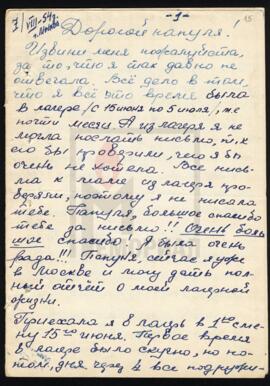 7/VIII-54г.
г. Москва
-1-
15
Дорогой папуля!
Извини меня пожалуйста,
за то, что я так давно не
отвечала. Всё дело в том,
что я всё это время была
в лагере /с 15 июня по 5 июля/,
почти месяц. А из лагеря я не
могла послать письмо, т.к.
его бы проверили, чего я бы
очень не хотела. Все пись-
ма к маме из лагеря про-
веряли, поэтому я не писала
тебе. Папуля, большое спасибо
тебе за письмо!! Очень боль
шое спасибо. Я была очень
рада!!! Папуля, сейчас я уже
в Москве и могу дать пол-
ный отчёт о моей лагерной
жизни.
Приехала я в лагерь в 1ую сме-
ну 15го июня. Первое время
в лагере было скучно, но по-
том, дня через 2 все подружи-